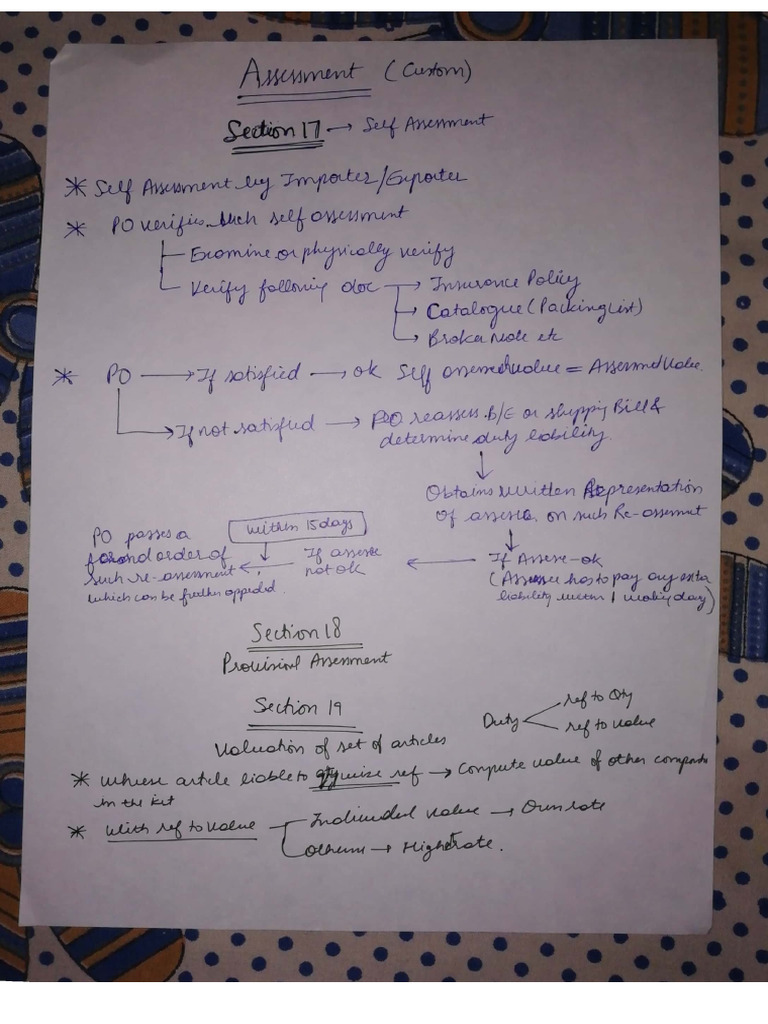 Assessment (Custom)
Section 17 → Self Assessment
* Self Assessment by Importer/Exporter
* PO verifies such self assessment
Examine or physically verify
Verify following doc → Insurance Policy
→ Catalogue (Packing List)
→ Broker Note etc
* PO → If satisfied → ok Self assessed value = Assessment Value.
→ If not satisfied → PO reassess B/E or shipping Bill &
determine duty liability.
Obtains written Representation
of assesse on such Re-assessment
If Assesse-ok
(Assessee has to pay any extra
liability within 1 working day)
← If assesse
not ok
within 15 days
PO passes a
order of
such re-assessment
which can be further appealed.
Section 18
Provisional Assessment
Section 19
Valuation of set of articles
Duty
ref to Qty
ref to value
* Whose article liable to qty wise ref → Compute value of other
in the kit
* With ref to value
Individual value → Own rate
Others → Highest rate.